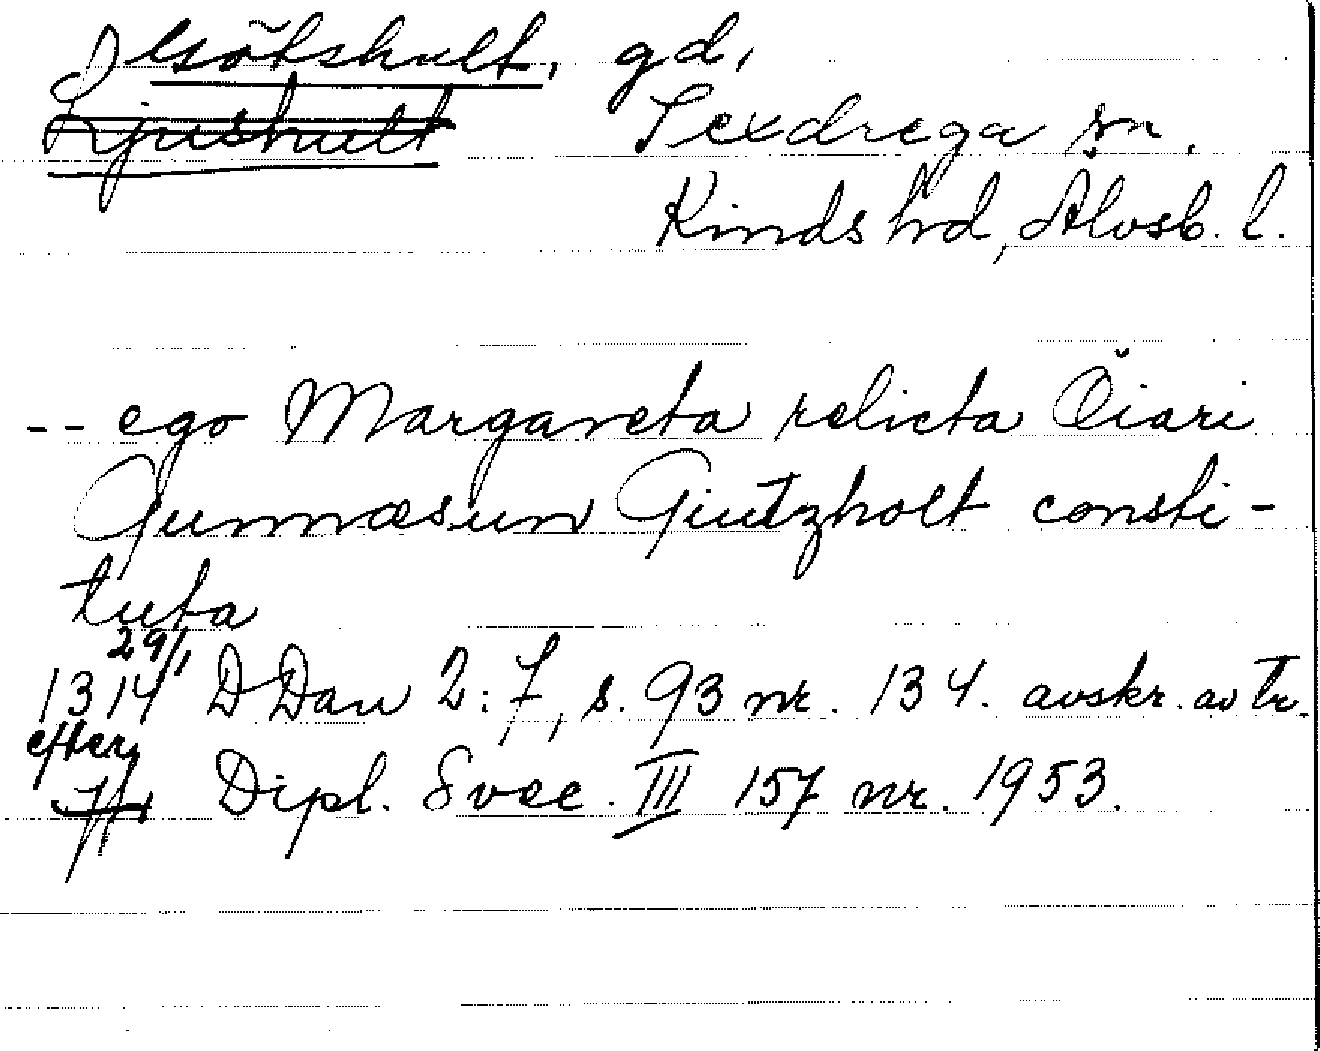 Jesötshult, gd,
Ljushult Sexdrega sn.
Kinds hd, Älvsb. l.
-- ego Margareta relicta Öiari
Gunnæsun Giutzholt consti-
tuta
29/1
1314 D Dan 2:7, s. 93 nr. 134. avskr. av tr.
efter
Dipl. Svec. III 157 nr. 1953.